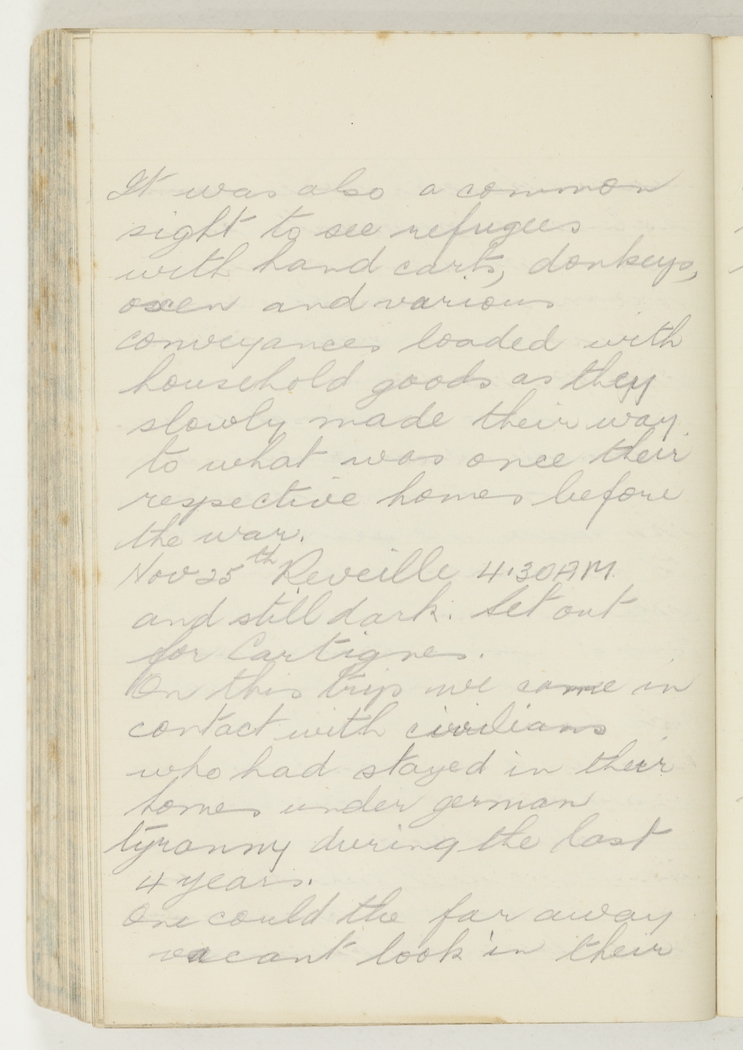 It was also a common
sight to see refugees
with hand carts, donkeys,
oxen and various
conveyances loaded with
household goods as they
slowly made their way
to what was once their
respective homes before
the war.
Nov 25th Reveille 4.30 AM.
and still dark. Set out
for Cartignes.
On this trip we came in
contact with civilians
who had stayed in their
homes under german
tyranny during the last
4 years.
One could the far away
vacant look in their